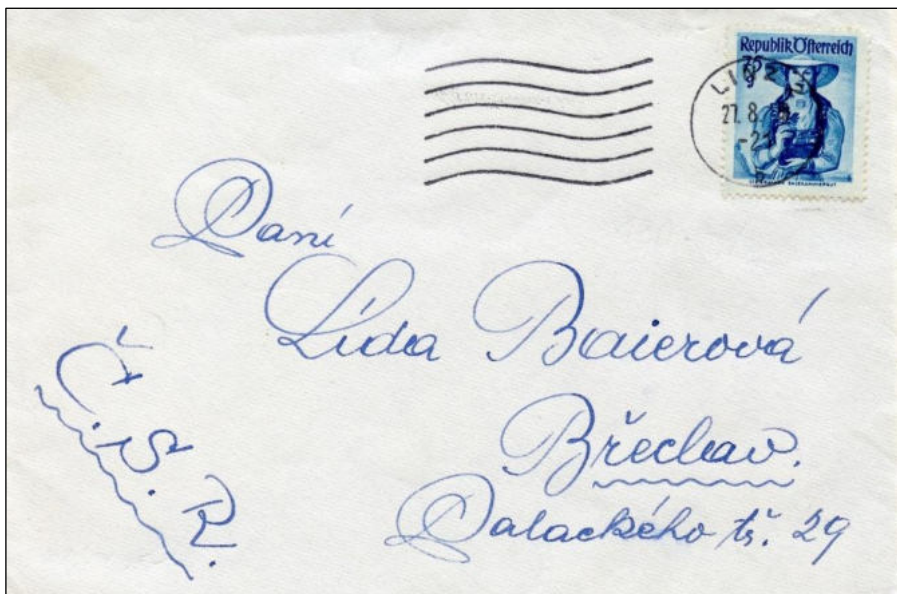 Republik Österreich
LINZ
27. 8.
-21
Paní
Lída Baierová
Břeclav.
Palackého tř. 29
Č.S.R.